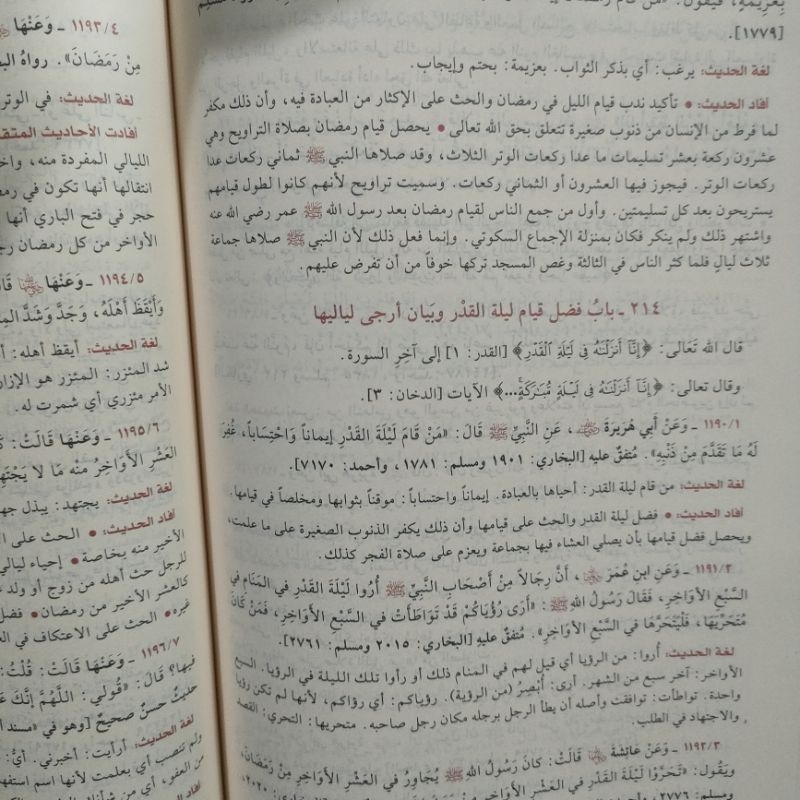 بِعَزِيمَةٍ، فيَقُولُ: «مَنْ قَامَ رَمَضَانَ
[١٧٧٩].
لغة الحديث: يرغب: أي بذكر الثواب. بعزيمة: بحتم وإيجاب.
أفاد الحديث: • تأكيد ندب قيام الليل في رمضان والحث على الإكثار من العبادة فيه، وأن ذلك مكفر
لما فرط من الإنسان من ذنوب صغيرة تتعلق بحق الله تعالى • يحصل قيام رمضان بصلاة التراويح وهي
عشرون ركعة بعشر تسليمات ما عدا ركعات الوتر الثلاث، وقد صلاها النبي ﷺ ثماني ركعات عدا
ركعات الوتر. فيجوز فيها العشرون أو الثماني ركعات. وسميت تراويح لأنهم كانوا لطول قيامهم
يستريحون بعد كل تسليمتين. وأول من جمع الناس لقيام رمضان بعد رسول الله ﷺ عمر رضي الله عنه
واشتهر ذلك ولم ينكر فكان بمنزلة الإجماع السكوتي. وإنما فعل ذلك لأن النبي ﷺ صلاها جماعة
ثلاث ليالٍ فلما كثر الناس في الثالثة وغص المسجد تركها خوفاً من أن تفرض عليهم.
٢١٤ ـ بابُ فضل قيام ليلة القدْر وبَيان أرجى لياليها
قال الله تَعَالى: ﴿إِنَّآ أَنزَلْنَٰهُ فِى لَيْلَةِ ٱلْقَدْرِ﴾ [القدر: ١] إلى آخِرِ السورة.
وقال تعالى: ﴿إِنَّآ أَنزَلْنَٰهُ فِى لَيْلَةٍ مُّبَٰرَكَةٍ...﴾ الآيات [الدخان: ٣].
١١٩٠/١ ـ وَعَنْ أَبي هُرَيرَةَ رضي الله عنه، عَنِ النَّبيِّ ﷺ قَالَ: «مَنْ قَامَ لَيْلَةَ القَدْرِ إيماناً وَاحْتِسَاباً، غُفِرَ
لَهُ مَا تَقَدَّمَ مِنْ ذَنْبِهِ». مُتفقٌ عليه [البخاري: ١٩٠١ ومسلم: ١٧٨١، وأحمد: ٧١٧٠].
لغة الحديث: من قام ليلة القدر: أحياها بالعبادة. إيماناً واحتساباً: موقناً بثوابها ومخلصاً في قيامها.
أفاد الحديث: • فضل ليلة القدر والحث على قيامها وأن ذلك يكفر الذنوب الصغيرة على ما علمت،
ويحصل فضل قيامها بأن يصلي العشاء فيها بجماعة ويعزم على صلاة الفجر كذلك.
١١٩١/٢ ـ وَعَنِ ابن عُمَرَ رضي الله عنهما، أَنَّ رِجَالاً مِنْ أَصْحَابِ النَّبيِّ ﷺ أُرُوا لَيْلَةَ القَدْرِ في المَنَامِ في
السَّبْعِ الأَوَاخِرِ، فَقَالَ رَسُولُ اللهِ ﷺ: «أَرَى رُؤيَاكُمْ قَدْ تَوَاطَأَتْ في السَّبْعِ الأَوَاخِرِ، فَمَنْ كَانَ
مُتَحَرِّيَهَا، فَلْيَتَحَرَّهَا في السَّبْعِ الأَوَاخِرِ». مُتفقٌ عليهِ [البخاري: ٢٠١٥ ومسلم: ٢٧٦١].
لغة الحديث: أُروا: من الرؤيا أي قيل لهم في المنام ذلك أو رأوا تلك الليلة في الرؤيا. السبع
الأواخر: آخر سبع من الشهر. أرى: أُبْصِرُ (من الرؤية). رؤياكم: أي رؤاكم، لأنها لم تكن رؤيا
واحدة. تواطأت: توافقت وأصله أن يطأ الرجل برجله مكان رجل صاحبه. متحريها: التحري: القصد
والاجتهاد في الطلب.
١١٩٢/٣ ـ وَعَنْ عائِشَةَ رضي الله عنها قَالَتْ: كانَ رَسُولُ اللهِ ﷺ يُجَاوِرُ في العَشْرِ الأَوَاخِرِ مِنْ رَمَضَانَ،
ويَقُول: «تَحَرَّوْا لَيْلَةَ القَدْرِ في العَشْرِ الأَوَاخِرِ مِنْ رَمَضَانَ
١١٩٣/٤ ـ وَعَنْهَا
مِنْ رَمَضَانَ». رواهُ
لغة الحديث: في الوتر
أفادت الأحاديث
الليالي المفردة منه،
انتقالها أنها تكون في
حجر في فتح الباري أنها
الأواخر من كل رمضان
١١٩٤/٥ ـ وَعَنْهَا
وَأَيْقَظَ أَهْلَهُ، وَجَدَّ وَشَدَّ
لغة الحديث: أيقظ أهله:
شد المئزر: المئزر هو
الأمر مئزري أي شمرت له.
١١٩٥/٦ ـ وَعَنْهَا قَالَتْ:
العَشْرِ الأَوَاخِرِ مِنْه مَا لا
لغة الحديث: يجتهد: يبذل
أفاد الحديث: • الحث على
الأخير منه بخاصة • إحياء ليالي
للرجل حث أهله من زوج أو ولد
كالعشر الأخير من رمضان • فضل
غيره • الحث على الاعتكاف في
١١٩٦/٧ ـ وَعَنْهَا قَالَتْ: قُلْتُ:
فيها؟ قَالَ: «قُولي: اللَّهُمَّ إنَّكَ
حديثٌ حسنٌ صحيحٌ [وهو في
لغة الحديث: أرأيت: أخبرني. أيُّ:
ولم تنصب أي بعلمت لأنها اسم
من العفو، أي من
أفاد الحديث: